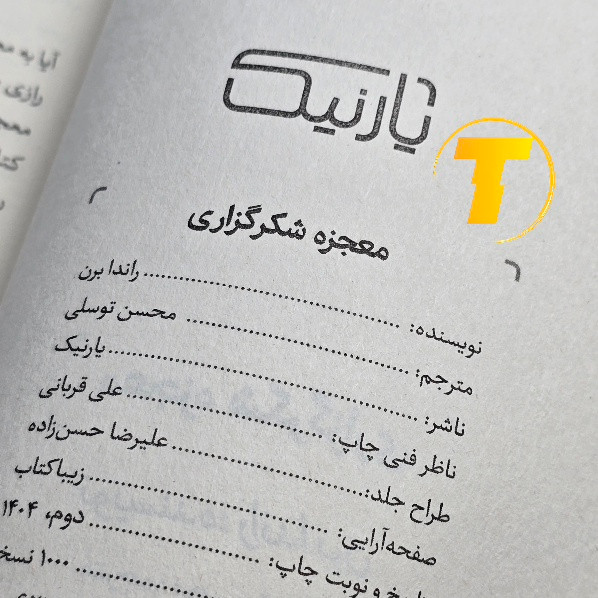 یارنیک
T
معجزه شکرگزاری
نویسنده: راندا برن
مترجم: محسن توسلی
ناشر: یارنیک
ناظر فنی چاپ: علی قربانی
طراح جلد: علیرضا حسن‌زاده
صفحه‌آرایی: زیباکتاب
و نوبت چاپ: دوم، ۱۴۰۴
۱۰۰۰
آیا به
رازی